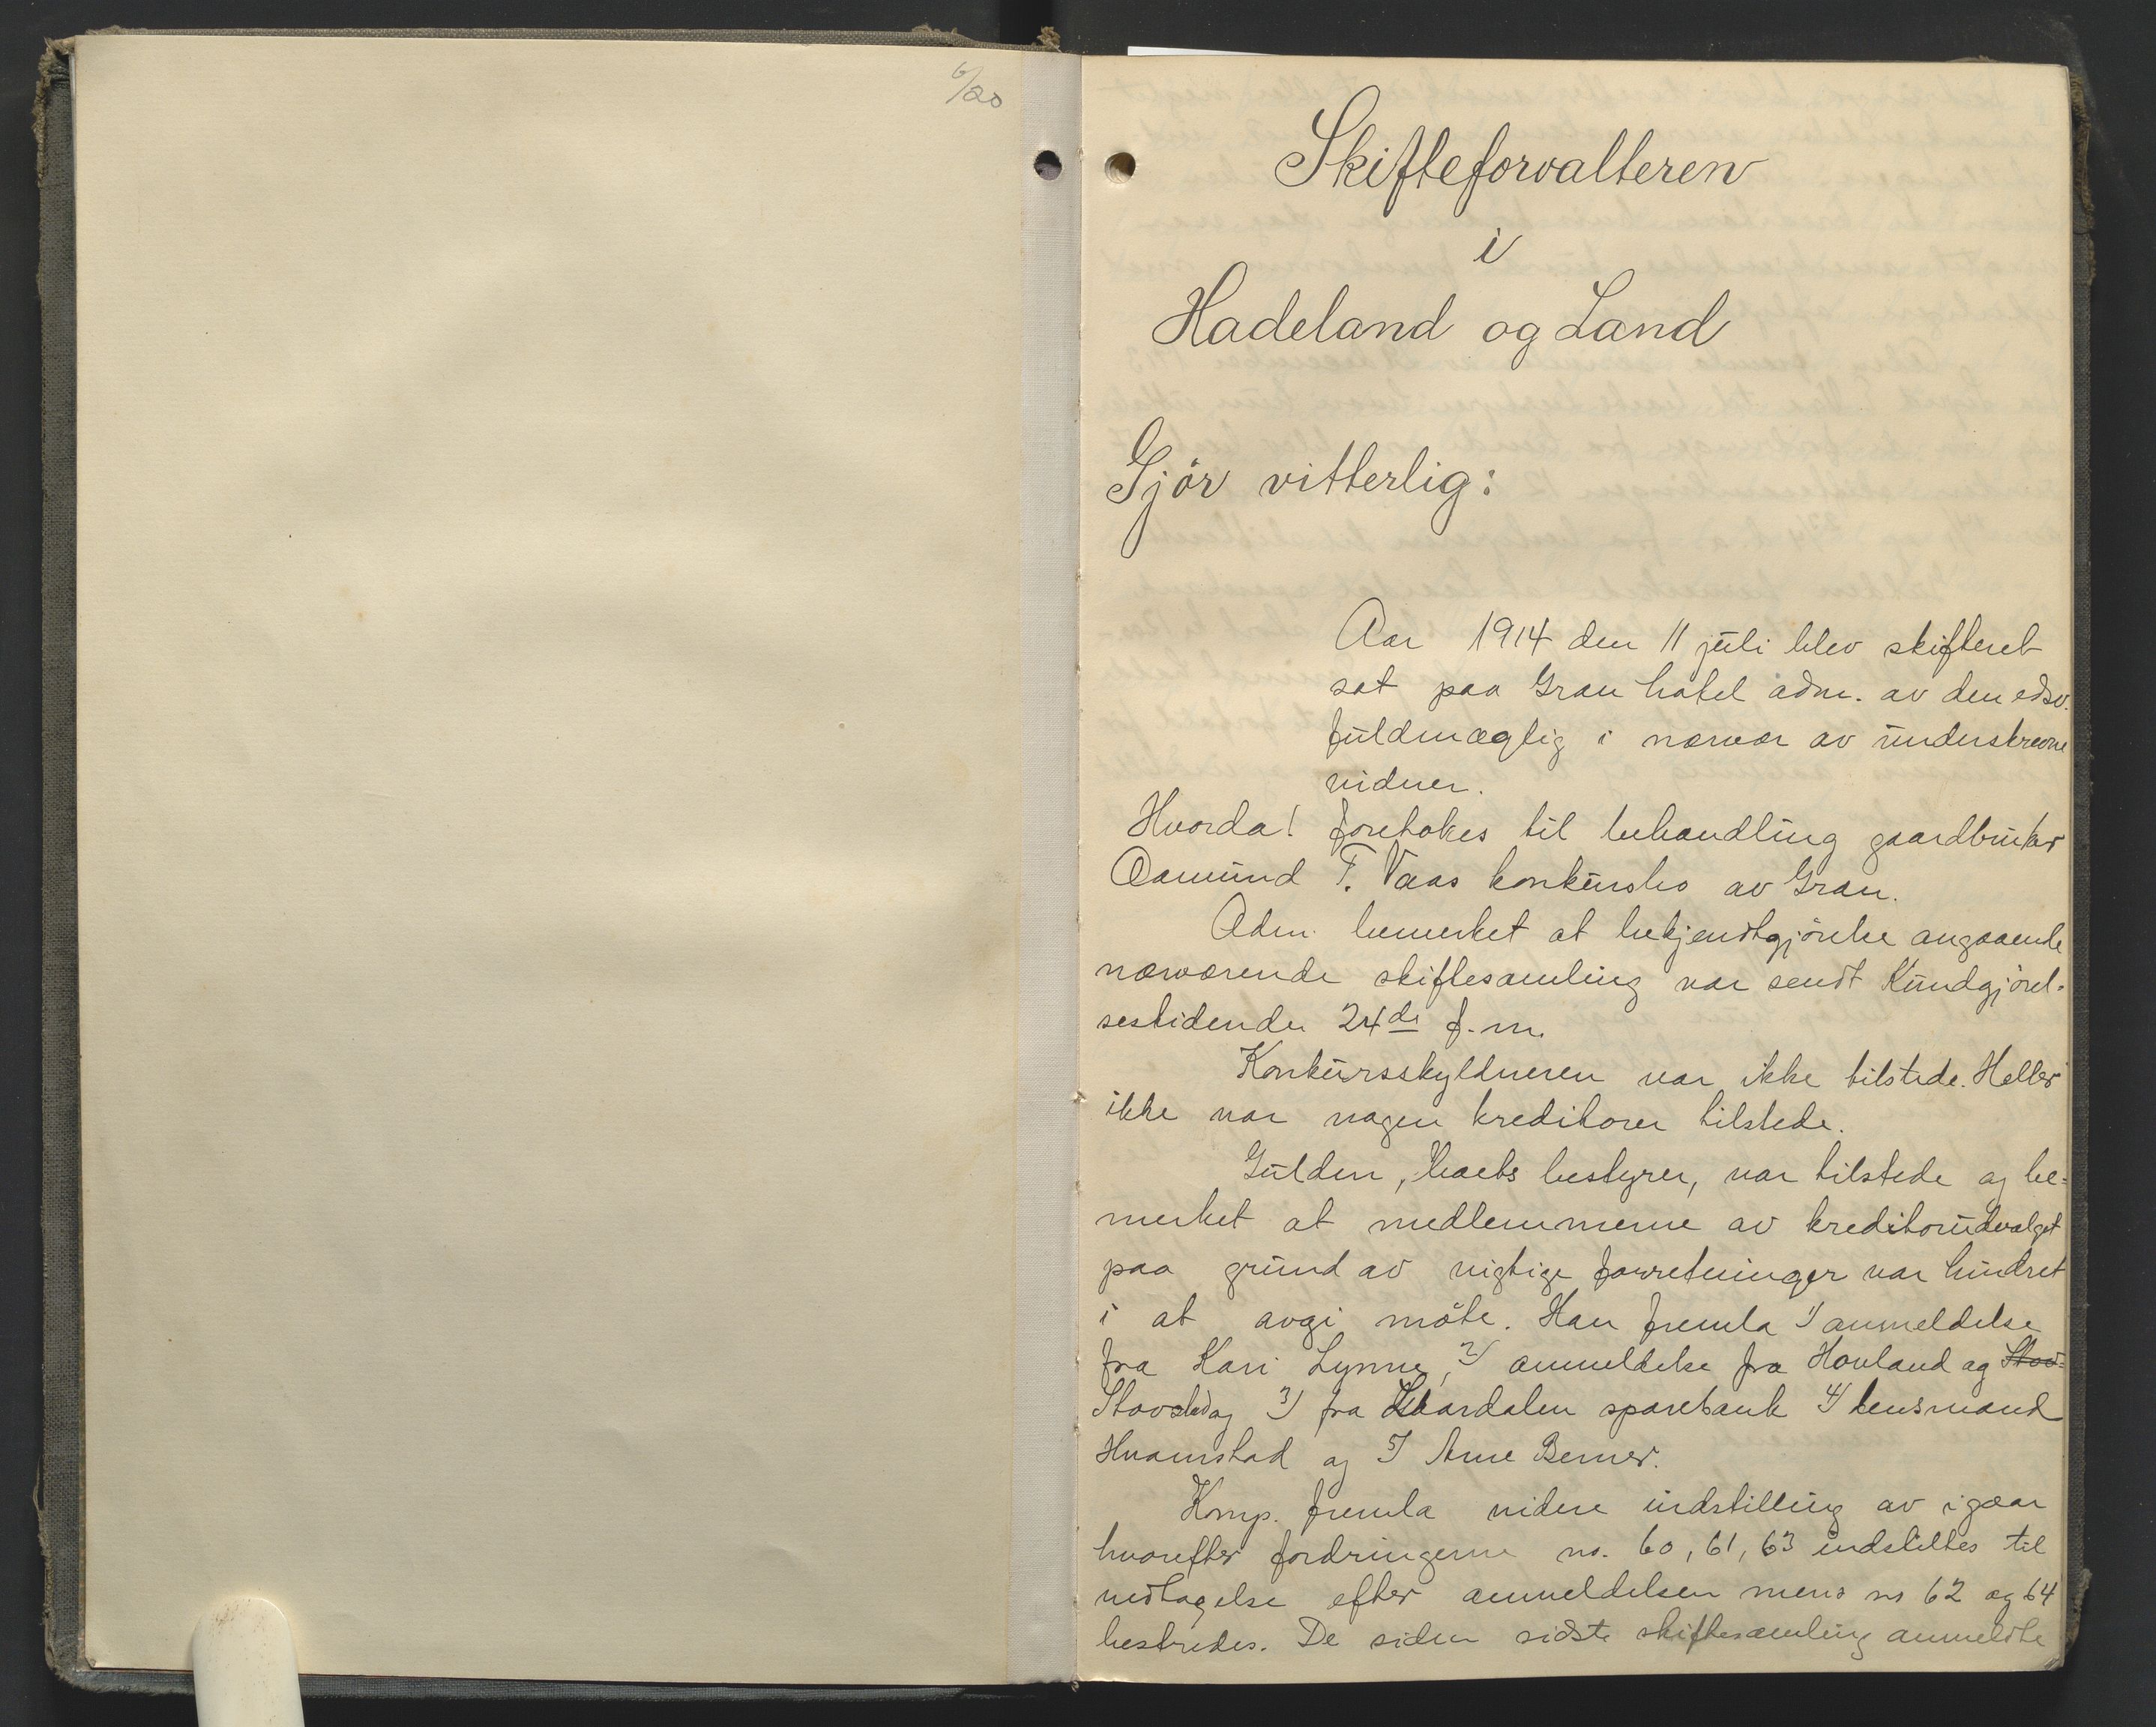 6/20
Skifteforvalteren
i
Hadeland og Land
Gjör vitterlig:
Aar 1914 den 11 juli blev skifteret
sat paa Gran hotel adm. av den edsv.
fuldmægtig i nærvær av underskrevne
vidner.
Hvorda! foretokes til behandling gaardbruker
Aamund T. Vaas konkursbo av Gran.
Adm. bemerket at bekjendtgjörelse angaaende
nærværende skiftesamling var sendt Kundgjörel-
sestidende 24de f.m.
Konkursskyldneren var ikke tilstede. Heller
ikke var nogen kreditorer tilstede.
Gulden, boets bestyrer, var tilstede og be-
merket at medlemmerne av kreditorudvalget
paa grund av vigtige forretninger var hindret
i at avgi möte. Han fremla 1/ anmeldelse
fra Kari Lynne, 2/ anmeldelse fra Hovland og Stov-
Stovslid og 3/ fra sparebank 4/ lensmand
Hvamstad og 5/ Arne Berner.
Komp. fremla videre indstilling av igaar
hvorefter fordringerne no. 60, 61, 63 indstilles til
vedtagelse efter anmeldelsen mens no 62 og 64
bestrides. De siden sidste skiftesamling anmeldte